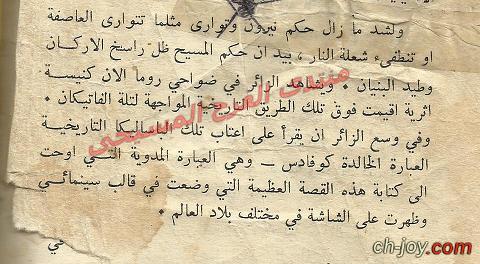 ولشد ما زال حكم نيرون وتوارى مثلما تتوارى العاصفة
او تنطفىء شعلة النار ، بيد ان حكم المسيح ظل راسخ الاركان
وطيد البنيان • ويشاهد الزائر في ضواحي روما الان كنيسة
اثرية اقيمت فوق تلك الطريق التاريخية المواجهة لتلة الفاتيكان
وفي وسع الزائر ان يقرأ على اعتاب تلك الباساليكا التاريخية
العبارة الخالدة كوفادس – وهي العبارة المدوية التي اوحت
الى كتابة هذه القصة العظيمة التي وضعت في قالب سينمائي
وظهرت على الشاشة في مختلف بلاد العالم •
في
منتدى الفرح المسيحى
ch-joy.com